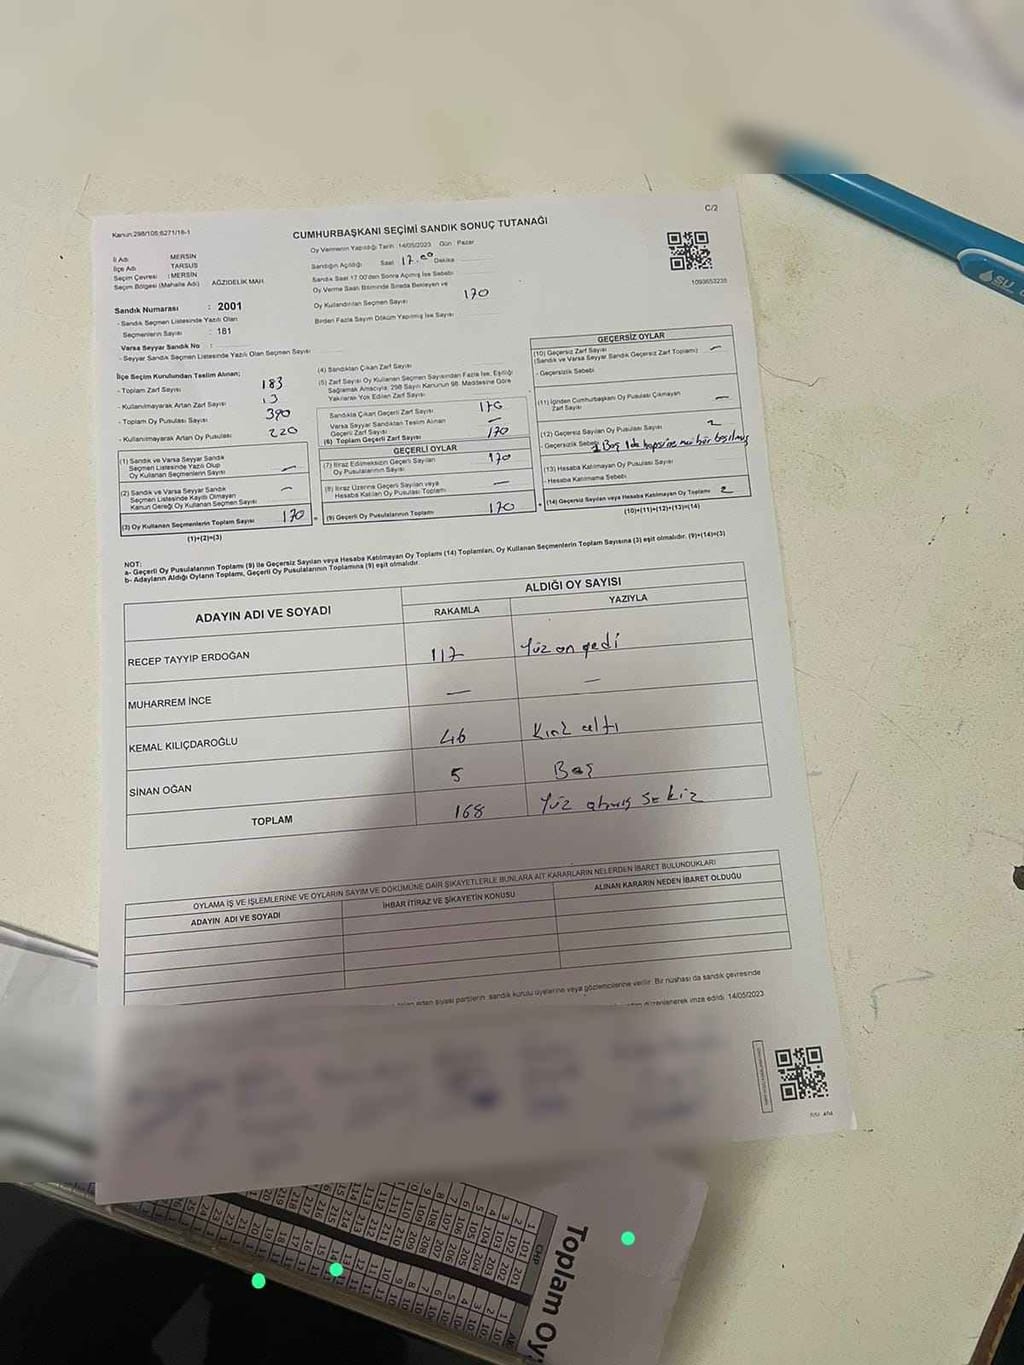 C/2
Kanun:298/105;6271/16-1
CUMHURBAŞKANI SEÇİMİ SANDIK SONUÇ TUTANAĞI
Oy Vermenin Yapıldığı Tarih 14/05/2023 Gün Pazar
İl Adı : MERSİN
İlçe Adı : TARSUS
Seçim Çevresi : MERSİN
Seçim Bölgesi (Mahalle Adı) AĞZIDELİK MAH.
Sandığın Açıldığı Saat 17.00 Dakika
Sandık Saat 17.00'den Sonra Açılmış İse Sebebi
Oy Verme Saati Bitiminde Sırada Bekleyen ve
Oy Kullandırılan Seçmen Sayısı 170
Birden Fazla Sayım Döküm Yapılmış İse Sayısı
1093653235
Sandık Numarası : 2001
- Sandık Seçmen Listesinde Yazılı Olan
Seçmenlerin Sayısı : 181
Varsa Seyyar Sandık No :
- Seyyar Sandık Seçmen Listesinde Yazılı Olan Seçmen Sayısı
İlçe Seçim Kurulundan Teslim Alınan;
- Toplam Zarf Sayısı 183
- Kullanılmayarak Artan Zarf Sayısı 13
- Toplam Oy Pusulası Sayısı 390
- Kullanılmayarak Artan Oy Pusulası 220
(1) Sandık ve Varsa Seyyar Sandık
Seçmen Listesinde Yazılı Olup
Oy Kullanan Seçmenlerin Sayısı —
(2) Sandık ve Varsa Seyyar Sandık
Seçmen Listesinde Kayıtlı Olmayan
Kanun Gereği Oy Kullanan Seçmen Sayısı —
(3) Oy Kullanan Seçmenlerin Toplam Sayısı 170
(1)+(2)=(3)
(4) Sandıktan Çıkan Zarf Sayısı
(5) Zarf Sayısı Oy Kullanan Seçmen Sayısından Fazla İse, Eşitliği
Sağlamak Amacıyla; 298 Sayılı Kanunun 98. Maddesine Göre
Yakılarak Yok Edilen Zarf Sayısı
Sandıkta Çıkan Geçerli Zarf Sayısı 170
Varsa Seyyar Sandıktan Teslim Alınan
Geçerli Zarf Sayısı —
(6) Toplam Geçerli Zarf Sayısı 170
GEÇERLİ OYLAR
(7) İtiraz Edilmeksizin Geçerli Sayılan
Oy Pusulalarının Sayısı 170
(8) İtiraz Üzerine Geçerli Sayılan veya
Hesaba Katılan Oy Pusulası Toplamı —
(9) Geçerli Oy Pusulalarının Toplamı 170
GEÇERSİZ OYLAR
(10) Geçersiz Zarf Sayısı
(Sandık ve Varsa Seyyar Sandık Geçersiz Zarf Toplamı) —
- Geçersizlik Sebebi
(11) İçinden Cumhurbaşkanı Oy Pusulası Çıkmayan
Zarf Sayısı —
(12) Geçersiz Sayılan Oy Pusulası Sayısı 2
- Geçersizlik Sebebi 1 Boş 1 de hepsine mühür basılmış
(13) Hesaba Katılmayan Oy Pusulası Sayısı
- Hesaba Katılmama Sebebi
(14) Geçersiz Sayılan veya Hesaba Katılmayan Oy Toplamı 2
(10)+(11)+(12)+(13)=(14)
NOT:
a- Geçerli Oy Pusulalarının Toplamı (9) ile Geçersiz Sayılan veya Hesaba Katılmayan Oy Toplamı (14) Toplamları, Oy Kullanan Seçmenlerin Toplam Sayısına (3) eşit olmalıdır. (9)+(14)=(3)
b- Adayların Aldığı Oyların Toplamı, Geçerli Oy Pusulalarının Toplamına (9) eşit olmalıdır.
ADAYIN ADI VE SOYADI
ALDIĞI OY SAYISI
RAKAMLA YAZIYLA
RECEP TAYYİP ERDOĞAN 117 Yüz on yedi
MUHARREM İNCE — —
KEMAL KILIÇDAROĞLU 46 Kırk altı
SİNAN OĞAN 5 Beş
TOPLAM 168 Yüz atmış sekiz
OYLAMA İŞ VE İŞLEMLERİNE VE OYLARIN SAYIM VE DÖKÜMÜNE DAİR ŞİKAYETLERLE BUNLARA AİT KARARLARIN NELERDEN İBARET BULUNDUKLARI
ADAYIN ADI VE SOYADI İHBAR İTİRAZ VE ŞİKAYETİN KONUSU ALINAN KARARIN NEDEN İBARET OLDUĞU
eden siyasi partilerin sandık kurulu üyelerine veya gözlemcilerine verilir. Bir nüshası da sandık çevresinde
düzenlenerek imza edildi. 14/05/2023
SU
Toplam Oy
CHP